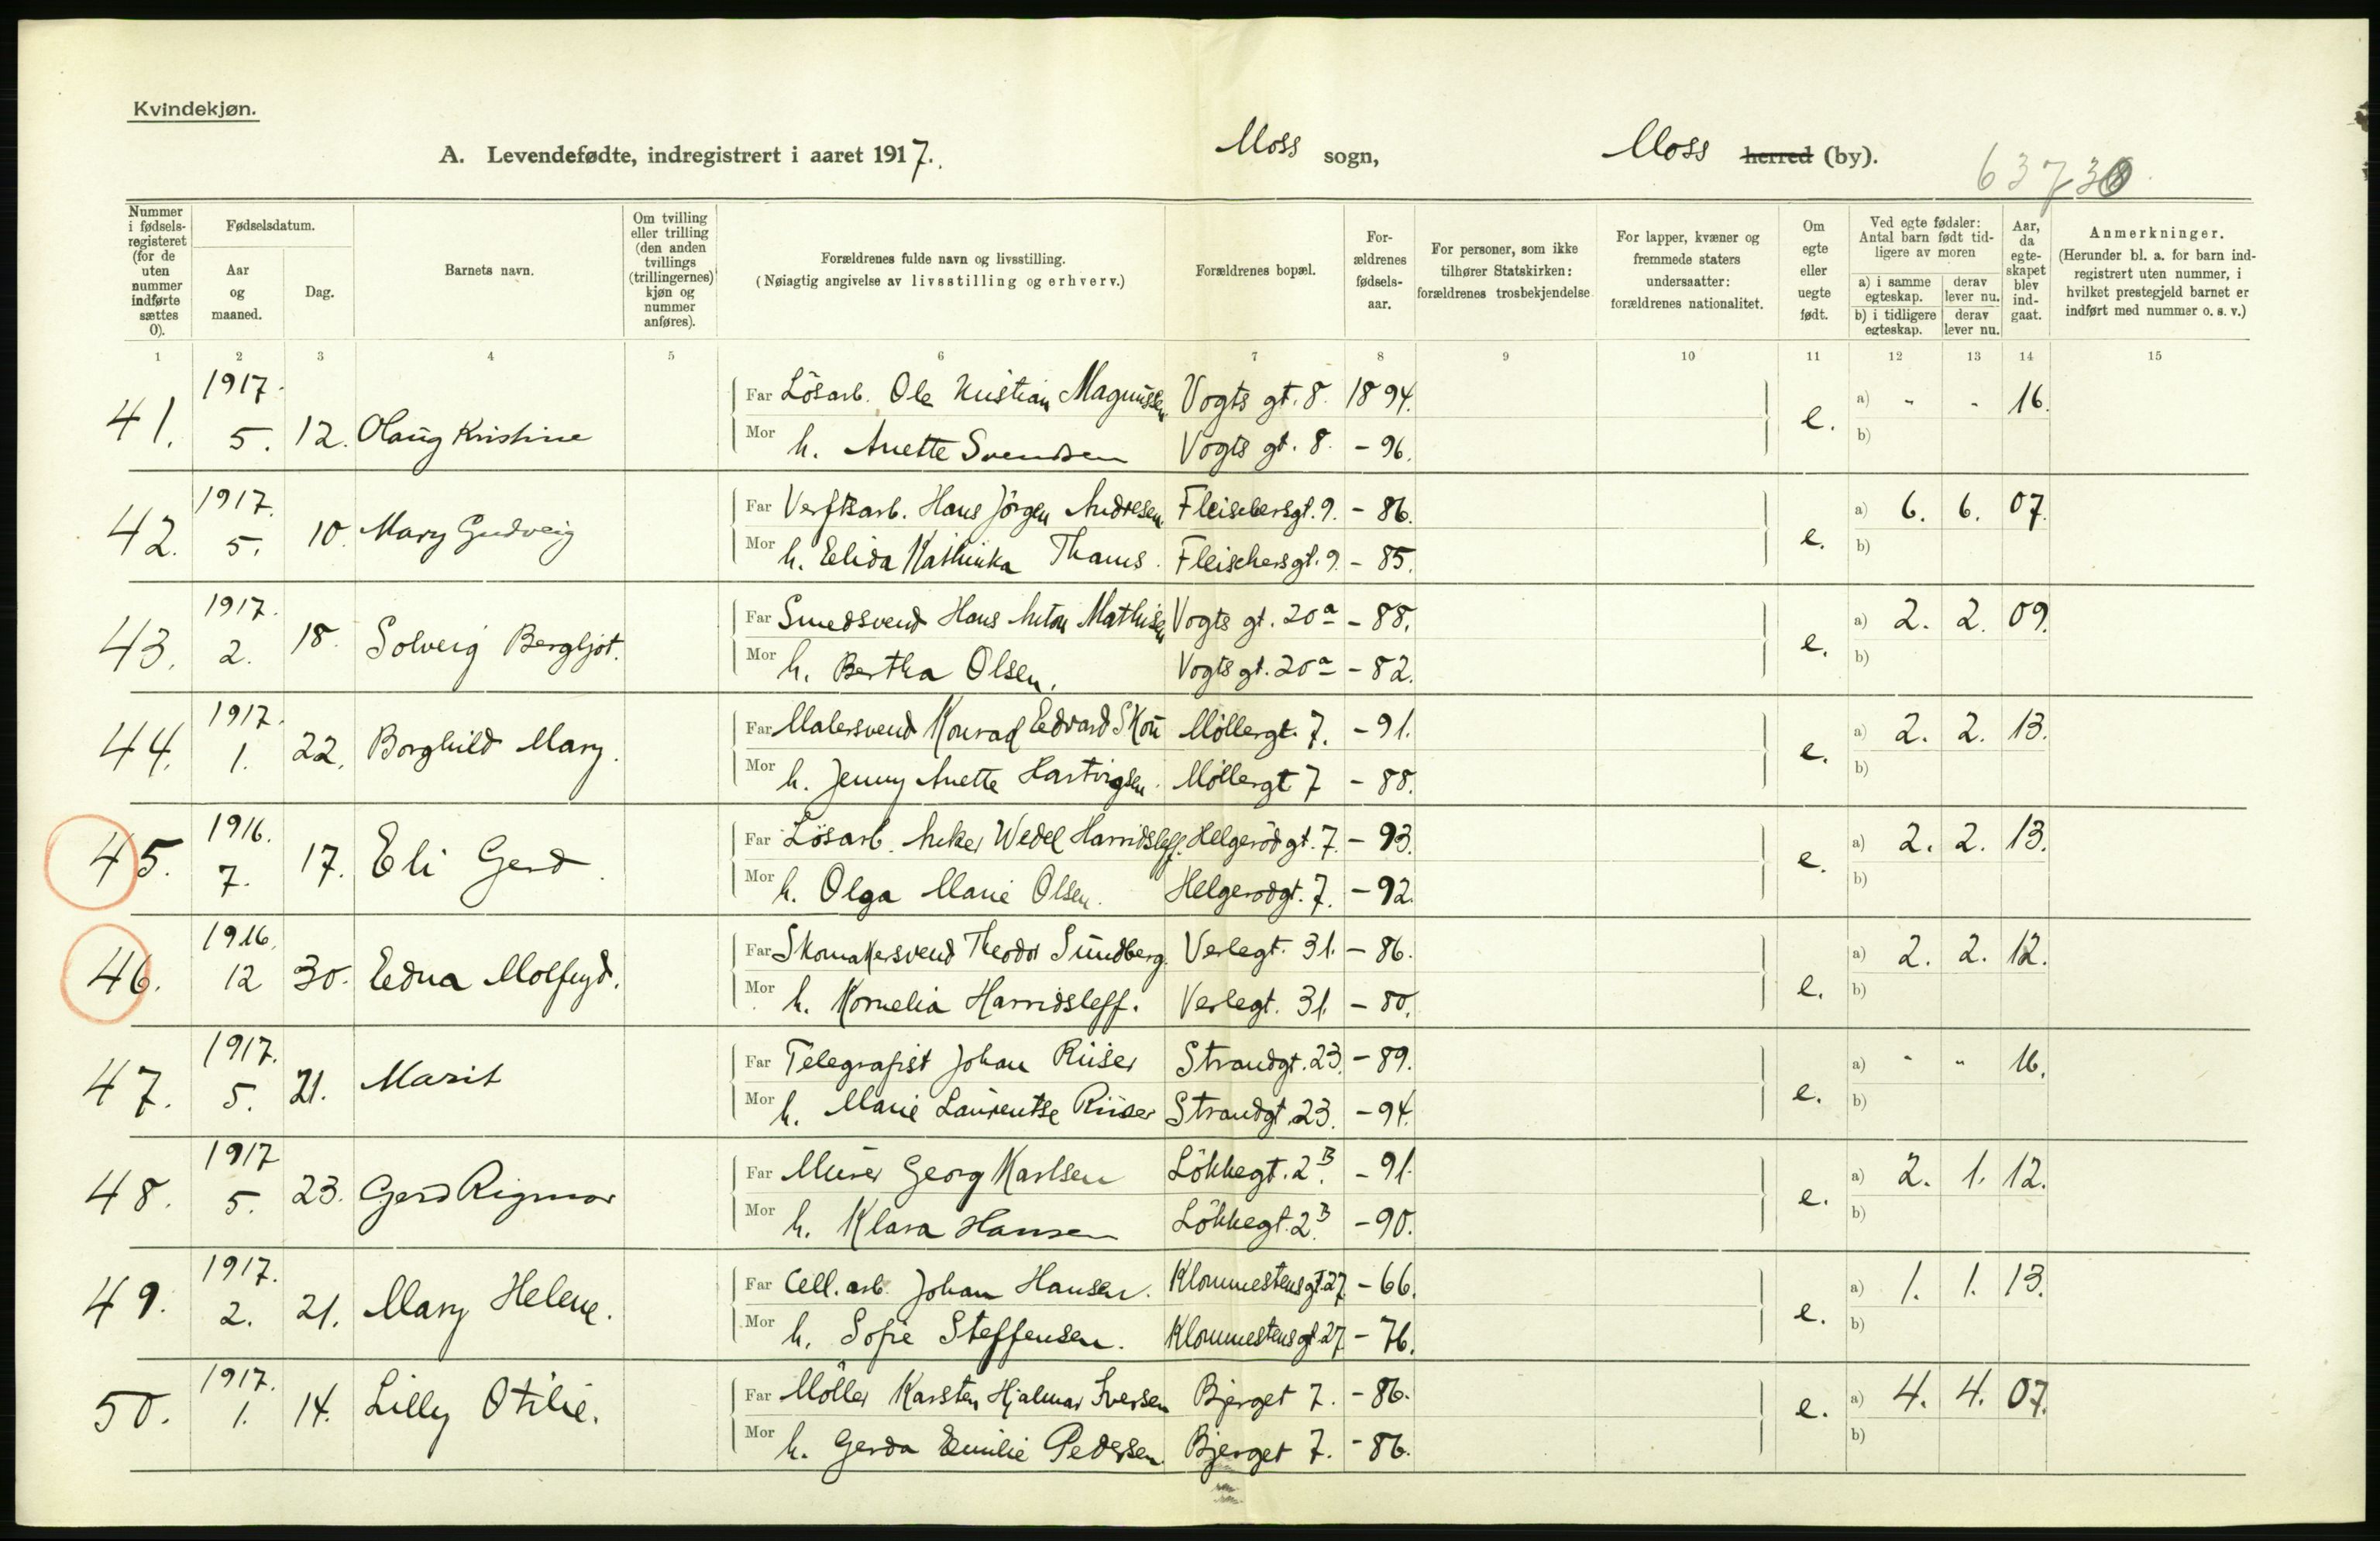 Kvindekjøn.
A. Levendefødte, indregistrert i aaret 1917. Moss sogn, Moss herred (by).
63730
Nummer i fødsels-registeret (for de uten nummer indførte sættes 0).
Fødselsdatum.
Aar og maaned.
Dag.
Barnets navn.
Om tvilling eller trilling (den anden tvillings (trillingernes) kjøn og nummer anføres).
Forældrenes fulde navn og livsstilling.
(Nøiagtig angivelse av livsstilling og erhverv.)
Forældrenes bopæl.
For-ældrenes fødsels-aar.
For personer, som ikke tilhører Statskirken: forældrenes trosbekjendelse
For lapper, kvæner og fremmede staters undersaatter: forældrenes nationalitet.
Om egte eller uegte født.
Ved egte fødsler: Antal barn født tid-ligere av moren
a) i samme egteskap. derav lever nu.
b) i tidligere egteskap. derav lever nu.
Aar, da egte-skapet blev ind-gaat.
Anmerkninger.
(Herunder bl. a. for barn ind-registrert uten nummer, i hvilket prestegjeld barnet er indført med nummer o. s. v.)
1 2 3 4 5 6 7 8 9 10 11 12 13 14 15
41. 1917. 5. 12. Olaug Kristine Far Lösarb. Ole Kristian Magnussen Vogts gt. 8. 1894. e. a) - - 16.
Mor h. Anette Svendsen Vogts gt. 8. - 96. b)
42. 1917. 5. 10. Mary Gudveig Far Verftsarb. Hans Jörgen Andresen. Fleischersgt. 9. - 86. e. a) 6. 6. 07.
Mor h. Elida Kathinka Thams. Fleischersgt. 9. - 85. b)
43. 1917. 2. 18. Solveig Bergljot. Far Smedsvend Hans Anton Mathisen Vogts gt. 20a - 88. e. a) 2. 2. 09.
Mor h. Bertha Olsen. Vogts gt. 20a - 82. b)
44. 1917. 1. 22. Borghild Mary. Far Malersvend Konrad Edvard Skou Möllergt. 7. - 91. e. a) 2. 2. 13.
Mor h. Jenny Anette Hartvigsen. Möllergt 7 - 88. b)
45. 1916. 7. 17. Eli Gerd. Far Lösarb. Anker Wedel Harridsleff. Helgerödgt. 7. - 93. e. a) 2. 2. 13.
Mor h. Olga Marie Olsen. Helgerödgt. 7. - 92. b)
46. 1916. 12 30. Edna Molfryd. Far Skomakersvend Theodor Sundberg. Verlegt. 31. - 86. e. a) 2. 2. 12.
Mor h. Kornelia Harridsleff. Verlegt. 31. - 80. b)
47. 1917. 5. 21. Marit Far Telegrafist Johan Riiser Strandgt. 23. - 89. e. a) - - 16.
Mor h. Marie Laurentse Riiser Strandgt. 23. - 94. b)
48. 1917 5. 23. Gerd Rigmor Far Murer Georg Karlsen Lökkegt. 2B. - 91. e. a) 2. 1. 12.
Mor h. Klara Hansen Lökkegt. 2B. - 90. b)
49. 1917. 2. 21. Mary Helene. Far Cell. arb. Johan Hansen. Klommestensgt. 27. - 66. e. a) 1. 1. 13.
Mor h. Sofie Steffensen. Klommestensgt. 27 - 76. b)
50. 1917. 1. 14. Lilly Otilie. Far Möller Karsten Hjalmar Iversen Bjerget 7. - 86. e. a) 4. 4. 07.
Mor h. Gerda Emilie Pedersen. Bjerget 7. - 86. b)